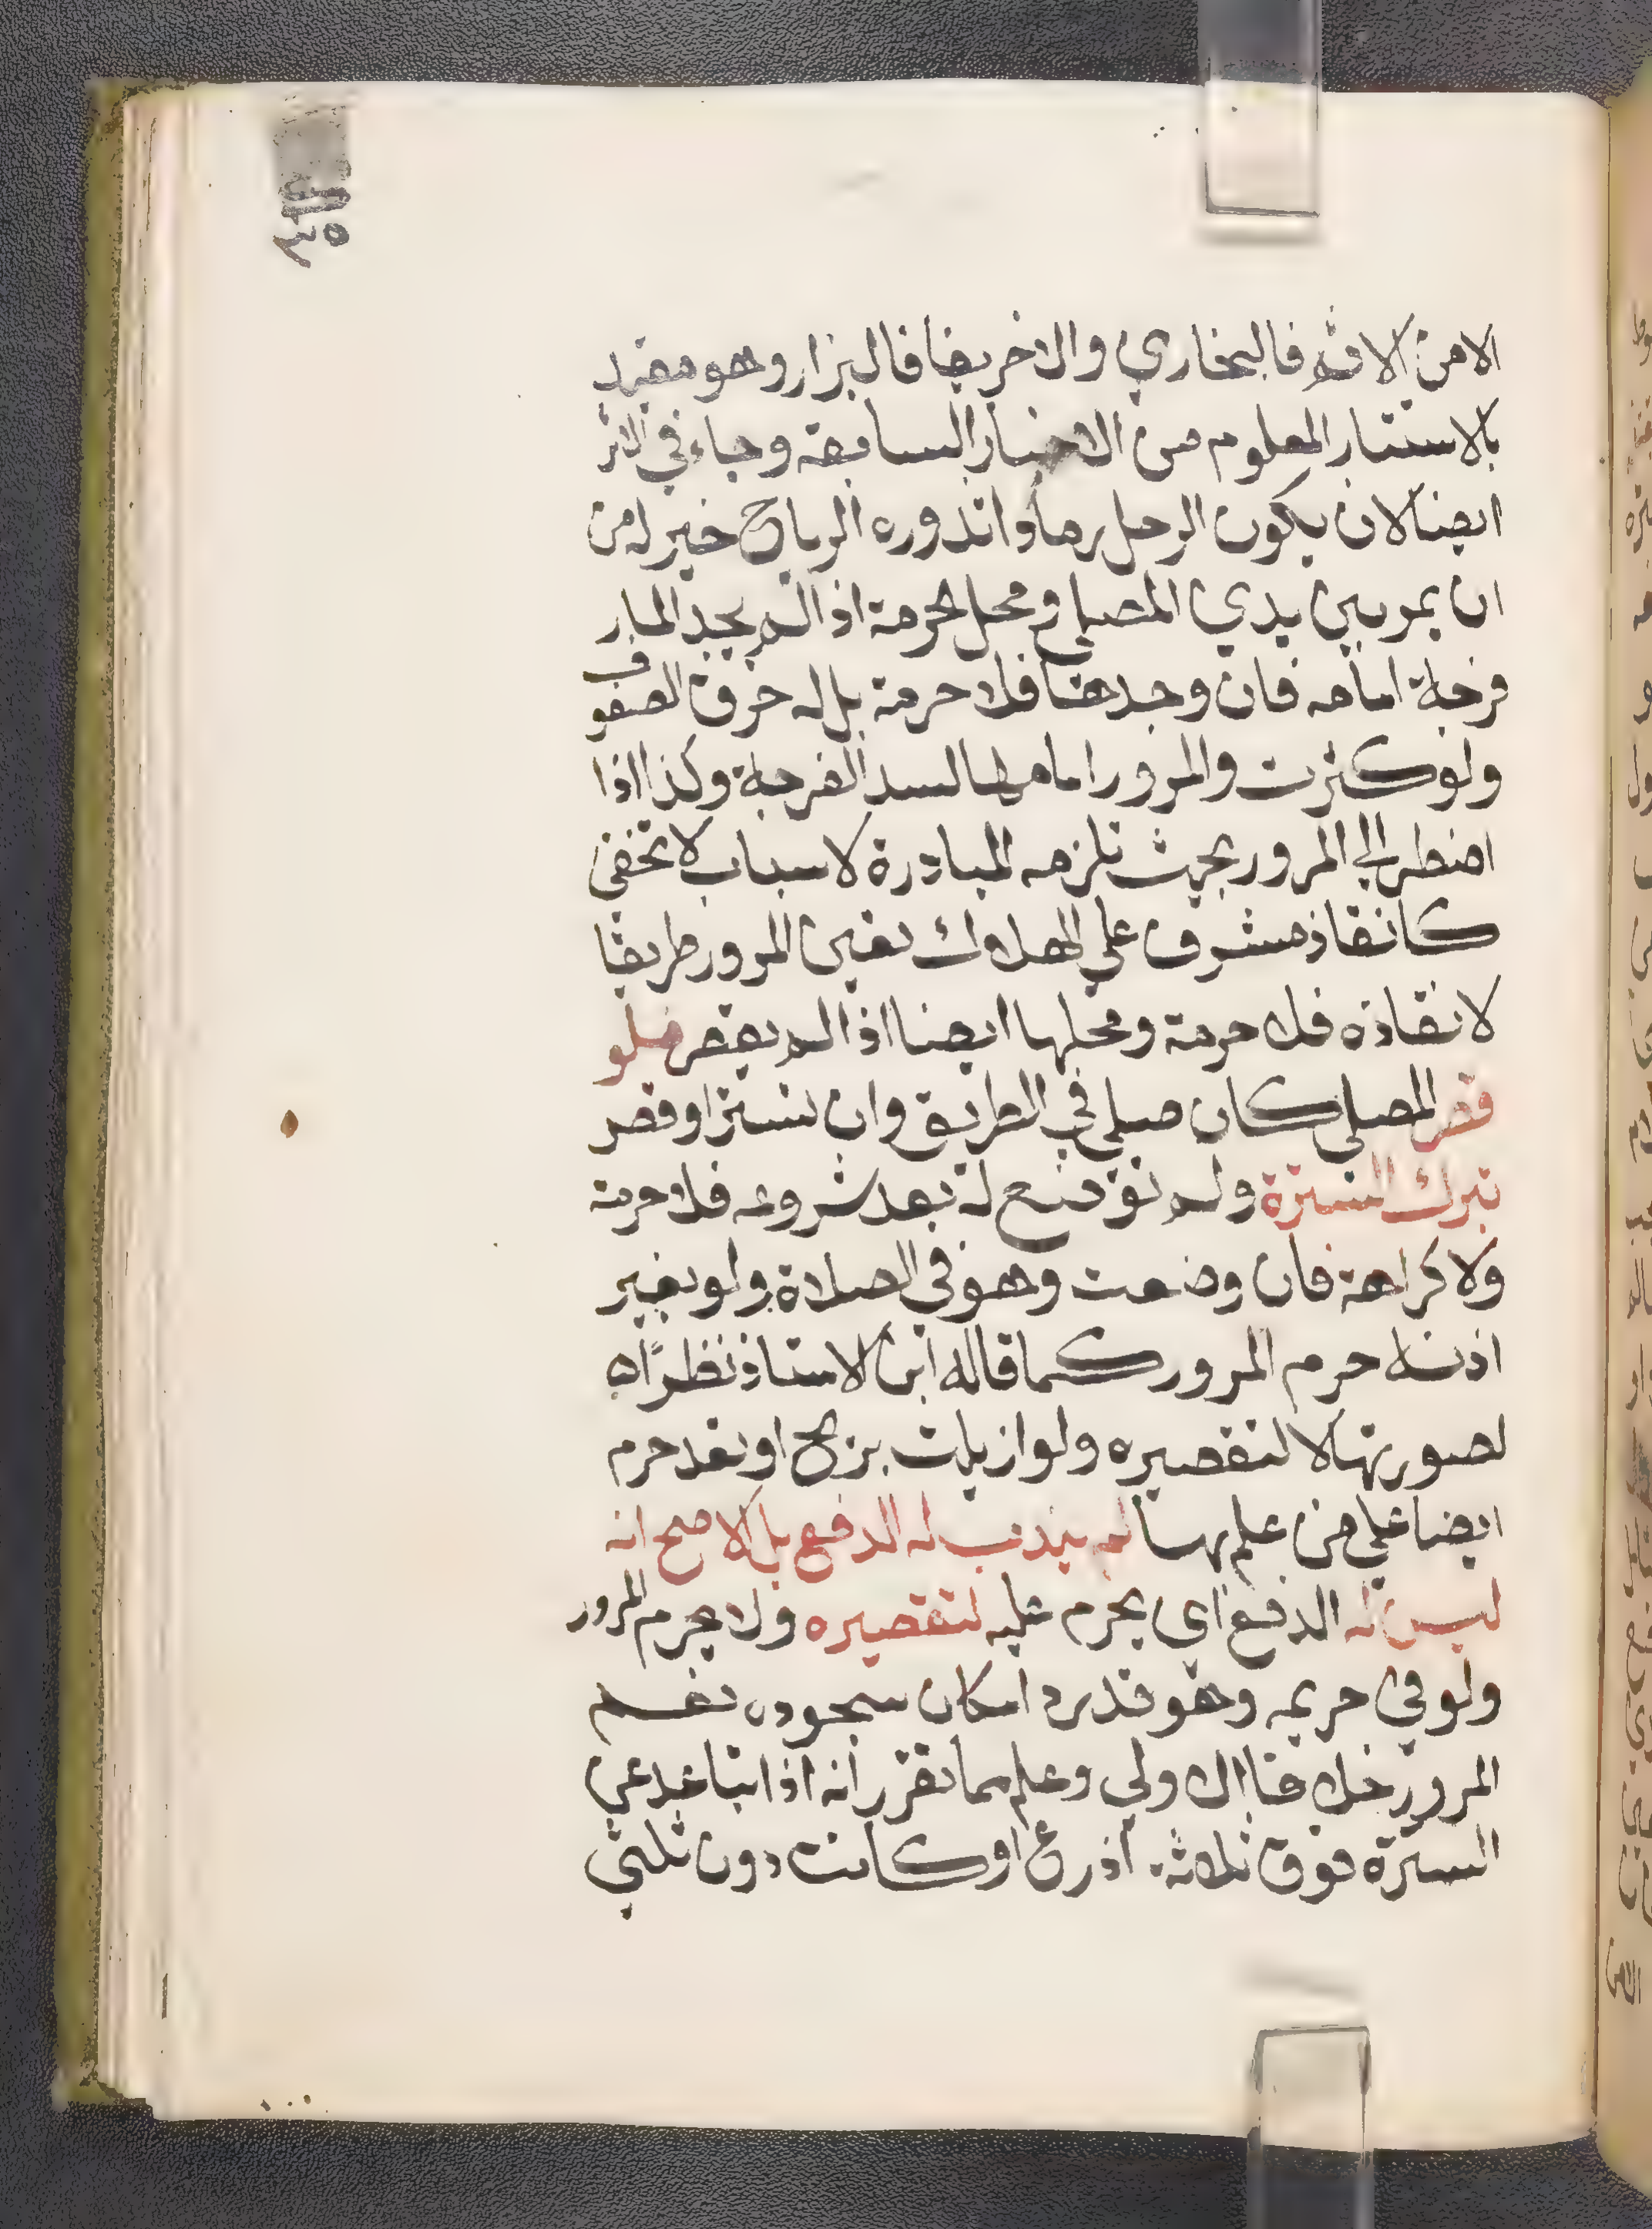 الا من الاثم فالبخاري والا خريفا فالبزار وهو مقيد
بالاستتار المعلوم من الاخبار السابقة وجاء في الاثر
ايضا لان يكون الرجل رمادا تذوره الرياح خير له من
ان يمر بين يدي المصلي ومحل الحرمة اذا لم يجد المار
فرجة امامه فان وجدها فلا حرمة بل له خرق الصفوف
ولو كثرت والمرور امامها لسد الفرجة وكذا اذا
اضطر الي المرور بحيث تلزمه المبادرة لاسباب لا تخفى
كانقاذ مشرف على الهلاك تعين المرور طريقا
لانقاذه فلا حرمة ومحلها ايضا اذا لم يقصر فلو
قصر المصلي كان صلي في الطريق وان تستر او قصر
بترك السترة ولم توضع له بعد شروعه فلا حرمة
ولا كراهة فان وضعت وهو في الصلاة ولو بغير
اذنه حرم المرور كما قاله ابن الاستاذ نظرا
لصورتها لا لتقصيره ولو ازيلت بريح او بغد حرم
ايضا علي من علم بها لم يندب له الدفع بل الاصح انه
ليس له الدفع اي يحرم عليه لتقصيره ولا يحرم المرور
ولو في حريمه وهو قدر امكان سجوده نعم
المرور خلاف الاولي وعلم مما تقرر انه اذا تباعد عن
السترة فوق ثلاثة اذرع او كانت دون ثلثي